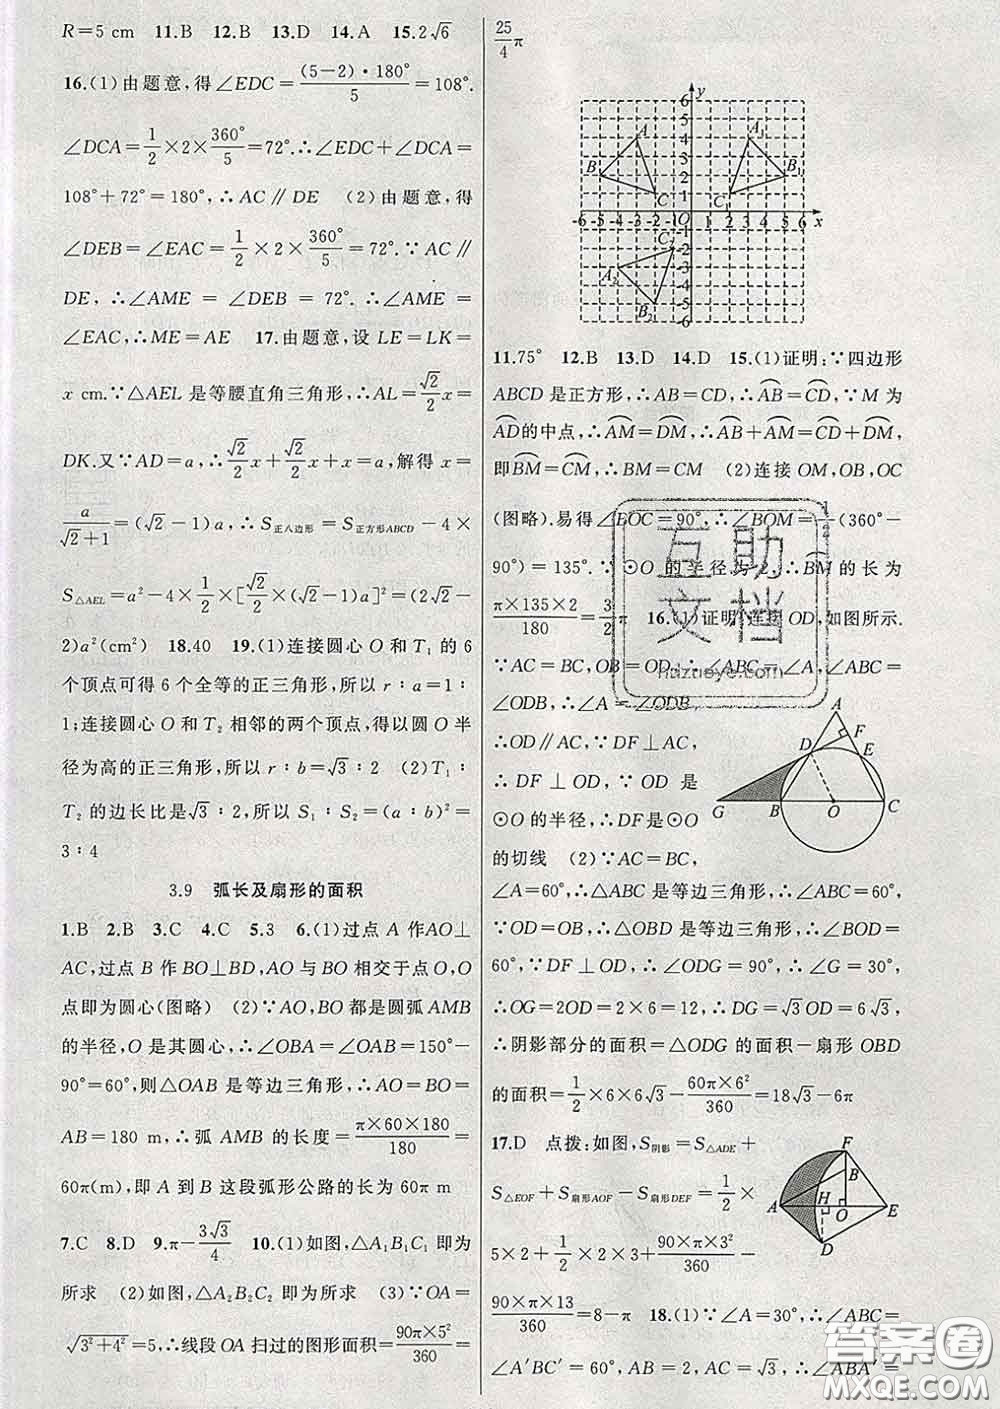 R＝5 cm　11.B　12.B　13.D　14.A　15.2√6
16.(1)由题意,得∠EDC＝(5－2)·180°/5＝108°.
∠DCA＝1/2×2×360°/5＝72°.∴∠EDC＋∠DCA＝
108°＋72°＝180°,∴AC∥DE　(2)由题意,得
∠DEB＝∠EAC＝1/2×2×360°/5＝72°.∵AC∥
DE,∴∠AME＝∠DEB＝72°.∴∠AME＝
∠EAC,∴ME＝AE　17.由题意,设LE＝LK＝
x cm.∵△AEL是等腰直角三角形,∴AL＝√2/2x＝
DK.又∵AD＝a,∴√2/2x＋√2/2x＋x＝a,解得x＝
a/(√2＋1)＝(√2－1)a,∴S正八边形＝S正方形ABCD－4×
S△AEL＝a²－4×1/2×[√2/2×(√2－1)a]²＝(2√2－
2)a²(cm²)　18.40　19.(1)连接圆心O和T₁的6
个顶点可得6个全等的正三角形,所以r∶a＝1∶
1;连接圆心O和T₂相邻的两个顶点,得以圆O半
径为高的正三角形,所以r∶b＝√3∶2　(2)T₁∶
T₂的边长比是√3∶2,所以S₁∶S₂＝(a∶b)²＝
3∶4
3.9　弧长及扇形的面积
1.B　2.B　3.C　4.C　5.3　6.(1)过点A作AO⊥
AC,过点B作BO⊥BD,AO与BO相交于点O,O
点即为圆心(图略)　(2)∵AO,BO都是圆弧AMB
的半径,O是其圆心,∴∠OBA＝∠OAB＝150°－
90°＝60°,则△OAB是等边三角形,∴AO＝BO＝
AB＝180 m,∴弧AMB的长度＝π×60×180/180＝
60π(m),即A到B这段弧形公路的长为60π m
7.C　8.D　9.π－3√3/4　10.(1)如图,△A₁B₁C₁即为
所求　(2)如图,△A₂B₂C₂即为所求　(3)∵OA＝
√(3²＋4²)＝5,∴线段OA扫过的图形面积＝90π×5²/360＝
25/4π
y
6
5
4
3
2
1
A
A₁
B
B₁
C
C₁
-6 -5 -4 -3 -2 -1 O 1 2 3 4 5 6 x
-1
-2
-3
-4
-5
-6
C₂
A₂
B₂
11.75°　12.B　13.D　14.D　15.(1)证明:∵四边形
ABCD是正方形,∴AB＝CD,∴A͡B＝C͡D,∵M为
A͡D的中点,∴A͡M＝D͡M,∴A͡B＋A͡M＝C͡D＋D͡M,
即B͡M＝C͡M,∴BM＝CM　(2)连接OM,OB,OC
(图略).易得∠BOC＝90°,∴∠BOM＝1/2(360°－
90°)＝135°.∵⊙O的半径为2,∴B͡M的长为
π×135×2/180＝3/2π　16.(1)证明:连接OD,如图所示.
∵AC＝BC,OB＝OD,∴∠ABC＝∠A,∠ABC＝
∠ODB,∴∠A＝∠ODB,
∴OD∥AC,∵DF⊥AC,
∴DF⊥OD,∵OD是
⊙O的半径,∴DF是⊙O
的切线　(2)∵AC＝BC,
A
D
F
E
G
B
O
C
∠A＝60°,∴△ABC是等边三角形,∴∠ABC＝60°,
∵OD＝OB,∴△OBD是等边三角形,∴∠BOD＝
60°,∵DF⊥OD,∴∠ODG＝90°,∴∠G＝30°,
∴OG＝2OD＝2×6＝12,∴DG＝√3OD＝6√3,
∴阴影部分的面积＝△ODG的面积－扇形OBD
的面积＝1/2×6×6√3－60π×6²/360＝18√3－6π
17.D　点拨:如图,S阴影＝S△ADE＋
S△EOF＋S扇形AOF－S扇形DEF＝1/2×
5×2＋1/2×2×3＋90×π×3²/360－
90×π×13/360＝8－π　18.(1)∵∠A＝30°,∴∠ABC＝
F
B
H
A
O
E
D
∠A′BC′＝60°,AB＝2,AC＝√3,∴∠ABA′＝
互助
文档
huzuoye.com
答案圈
MXQE.COM